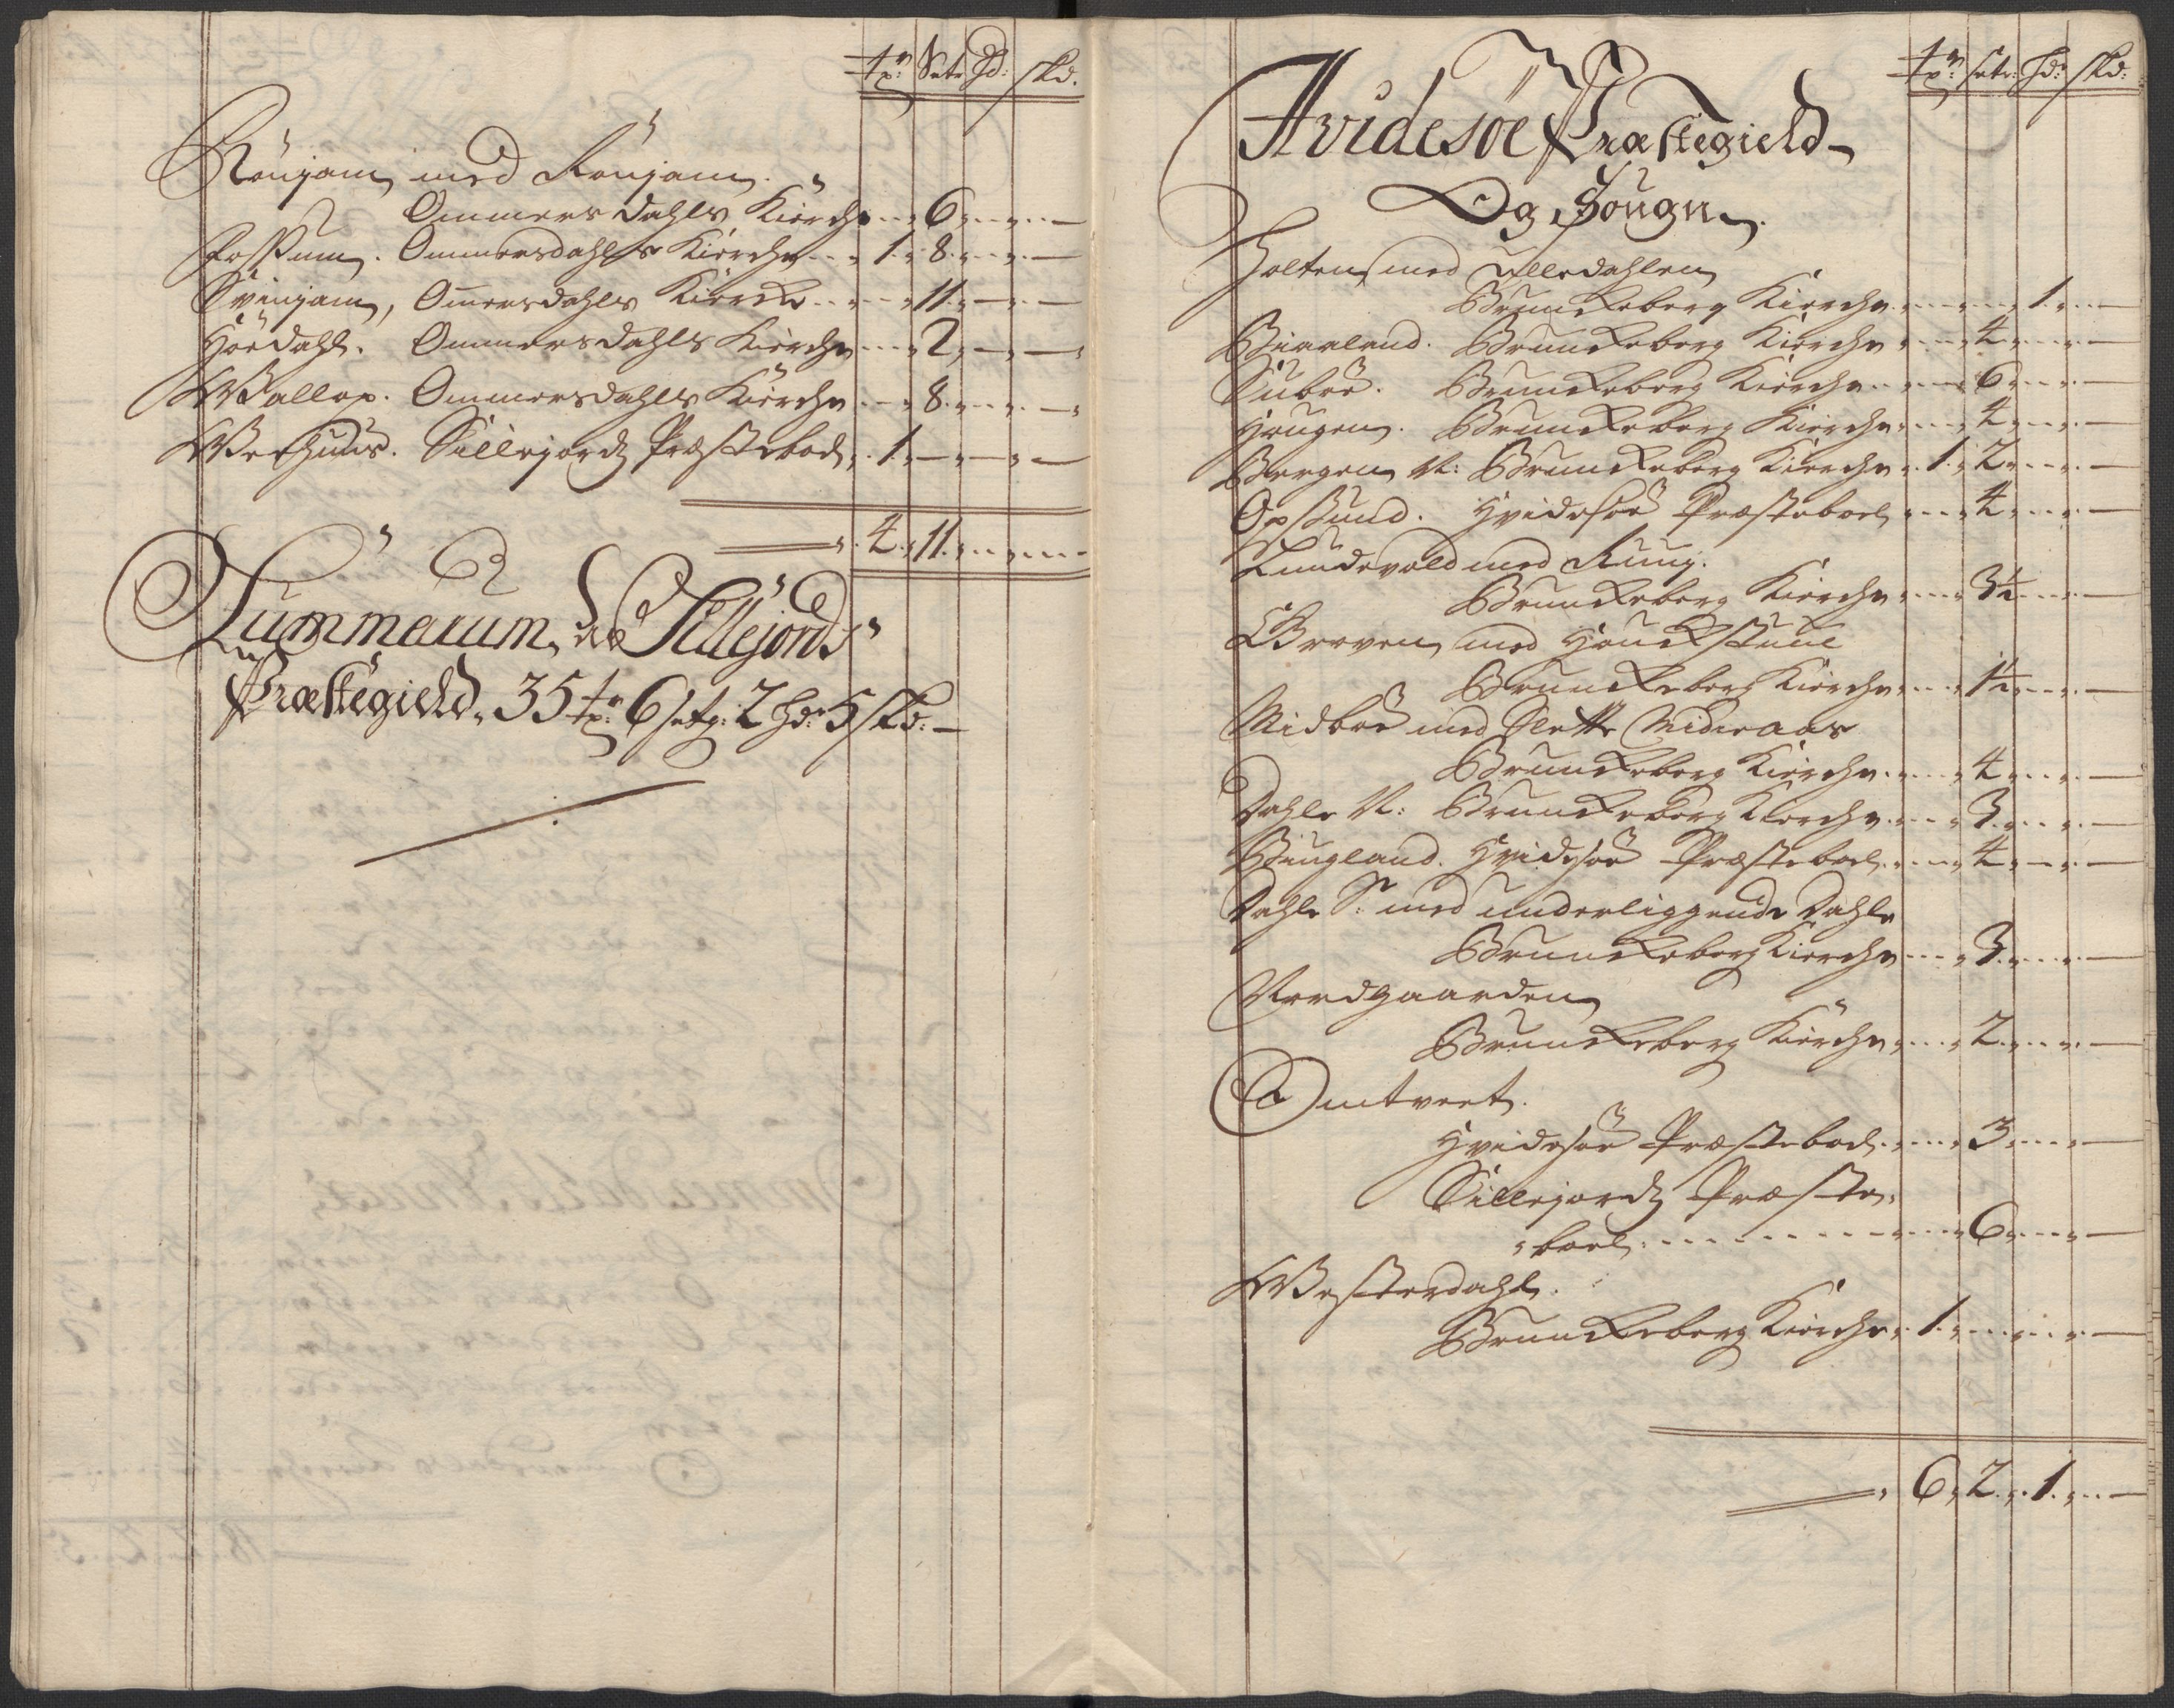 tpr: Setr hd: skd.
Rönjam med Rönjam.
Ommersdahls Kierche 6
Fossum. Ommersdahls Kierche 1. 8
Svinjam, Om̄ersdahls Kierke 11
Höedahl. Ommersdahls Kierche 2
Wallop. Ommersdahls Kierche 8
Weehuus. Sillejordz Præsteboel 1
4. 11.
Summarum, af Sillejords
Præstegield, 35 tpr: 6 setg: 2 hd: 5 skd:
tpr: setr: hdr skd:
Hvidesöe Præstegield
Og Sougn.
Holten med Lilledahlen
Brunckeberg Kierche 1
Biaaland. Brunckeberg Kierche 4
Siuboe. Brunckeberg Kierche 6
Hougen. Brunckeberg Kierche 4
Bergen N: Brunckeberg Kierche 1. 2
Opsund. Hvidesöe Præsteboel 4
Lundevold med Ruug.
Brunckeberg Kierche 3½
Groven med Houckstuul
Brunckeberg Kierche 1½
Midböe med Slette Midieaas
Brunckeberg Kierche 4
Dahle N: Brunckeberg Kierche 3
Biugland. Hvidesöe Præsteboel 4
Dahle S: med underliggende Dahle
Brunckeberg Kierche 3
Nordgaarden
Brunckeberg Kierche 2
Omtveet.
Hvidesöe Præsteboel 3
Sillejordz Præste-
boel 6
Westerdahl.
Brunckeberg Kierche 1
6. 2. 1.